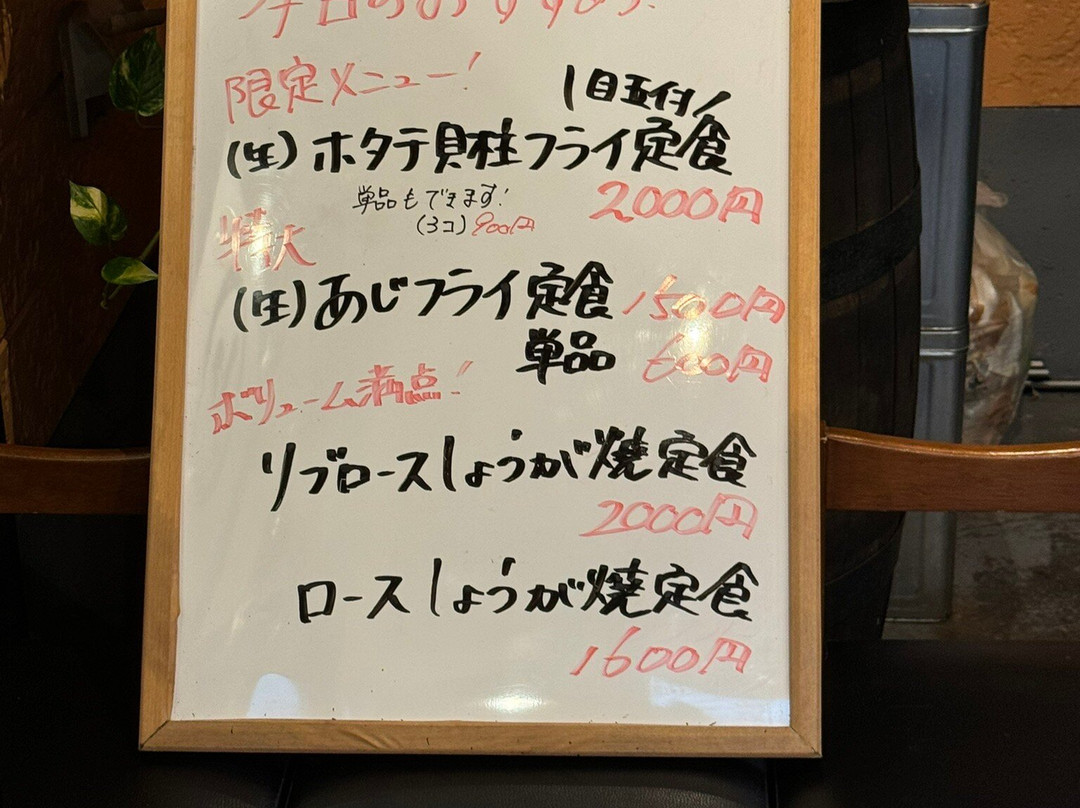 本日のおすすめ!
限定メニュー!
\目玉付/
(生)ホタテ貝柱フライ定食
2000円
単品もできます!
(3コ)900円
特大
(生)あじフライ定食 1500円
単品 600円
ボリューム満点!
リブロースしょうが焼定食
2000円
ロースしょうが焼定食
1600円